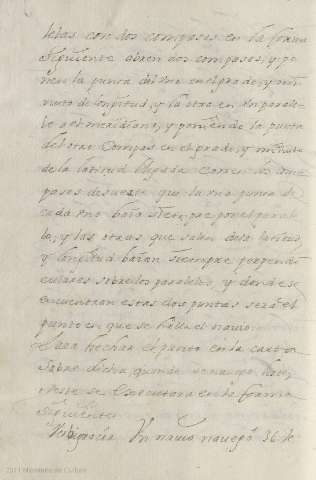 letas con dos compases en la forma
siguiente abren dos compases, y po
nen la punta del vno en el grado, y mi
nuto de longitud, y la otra en vn parale
lo al meridiano, y poniendo la punta
del otro compas en el grado, y minuto
de la latitud llegada corren los com
pases de suerte que la vna punta de
cada vno baia siempre por el parale
lo, y las otras, que salen de la latitud,
y longitud baian siempre perpendi
culares sobre los paralelos, y donde se
encuentran estas dos puntas será el
punto en que se halla el navio.
Para hechar el punto en la carta
sobre dicha
este se executara en la forma
siguiente.
Verbigracia Vn navio navegó 36 l
2011 Ministerio de Cultura